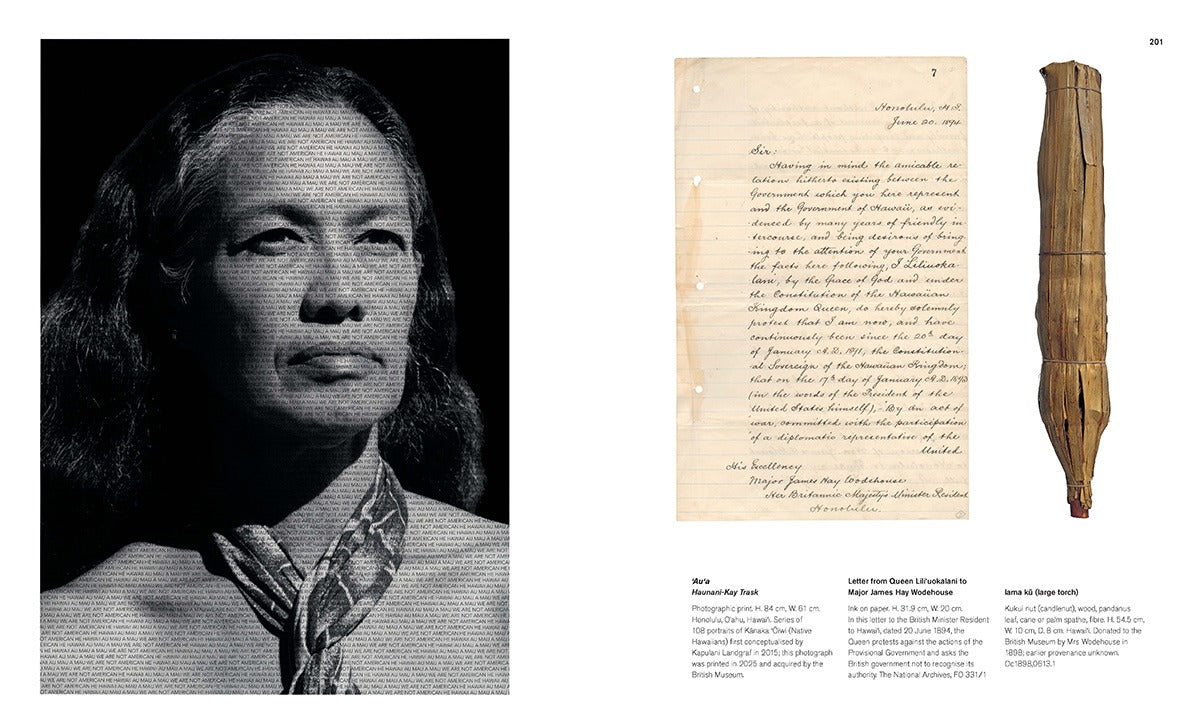 WE ARE NOT AMERICAN HE HAWAII AU MAU A MAU
201
7
Honolulu, H.I.
June 20. 1894
Sir:
Having in mind the amicable re-
lations hitherto existing between the
Government which you here represent
and the Government of Hawaii, as evi-
denced by many years of friendly in-
tercourse, and being desirous of bring
ing to the attention of your Government
the facts here following, I Liliuoka-
lani, by the Grace of God and under
the Constitution of the Hawaiian
Kingdom Queen, do hereby solemnly
protest that I am now, and have
continuously been since the 20th day
of January A.D. 1891, the Constitution-
al Sovereign of the Hawaiian Kingdom;
that on the 17th day of January A.D. 1893
(in the words of the President of the
United States himself),- "By an act of
war, committed with the participation
of a diplomatic representative of the
United
His Excellency
Major James Hay Wodehouse
Her Britannic Majesty's Minister Resident
Honolulu.
'Au'a
Haunani-Kay Trask
Photographic print. H. 84 cm, W. 61 cm.
Honolulu, O'ahu, Hawai'i. Series of
108 portraits of Kānaka 'Ōiwi (Native
Hawaiians) first conceptualised by
Kapulani Landgraf in 2015; this photograph
was printed in 2025 and acquired by the
British Museum.
Letter from Queen Lili'uokalani to
Major James Hay Wodehouse
Ink on paper. H. 31.9 cm, W. 20 cm.
In this letter to the British Minister Resident
to Hawai'i, dated 20 June 1894, the
Queen protests against the actions of the
Provisional Government and asks the
British government not to recognise its
authority. The National Archives, FO 331/1
lama kū (large torch)
Kukui nut (candlenut), wood, pandanus
leaf, cane or palm spathe, fibre. H. 54.5 cm,
W. 10 cm, D. 8 cm. Hawai'i. Donated to the
British Museum by Mrs Wodehouse in
1898; earlier provenance unknown.
Oc1898,0613.1